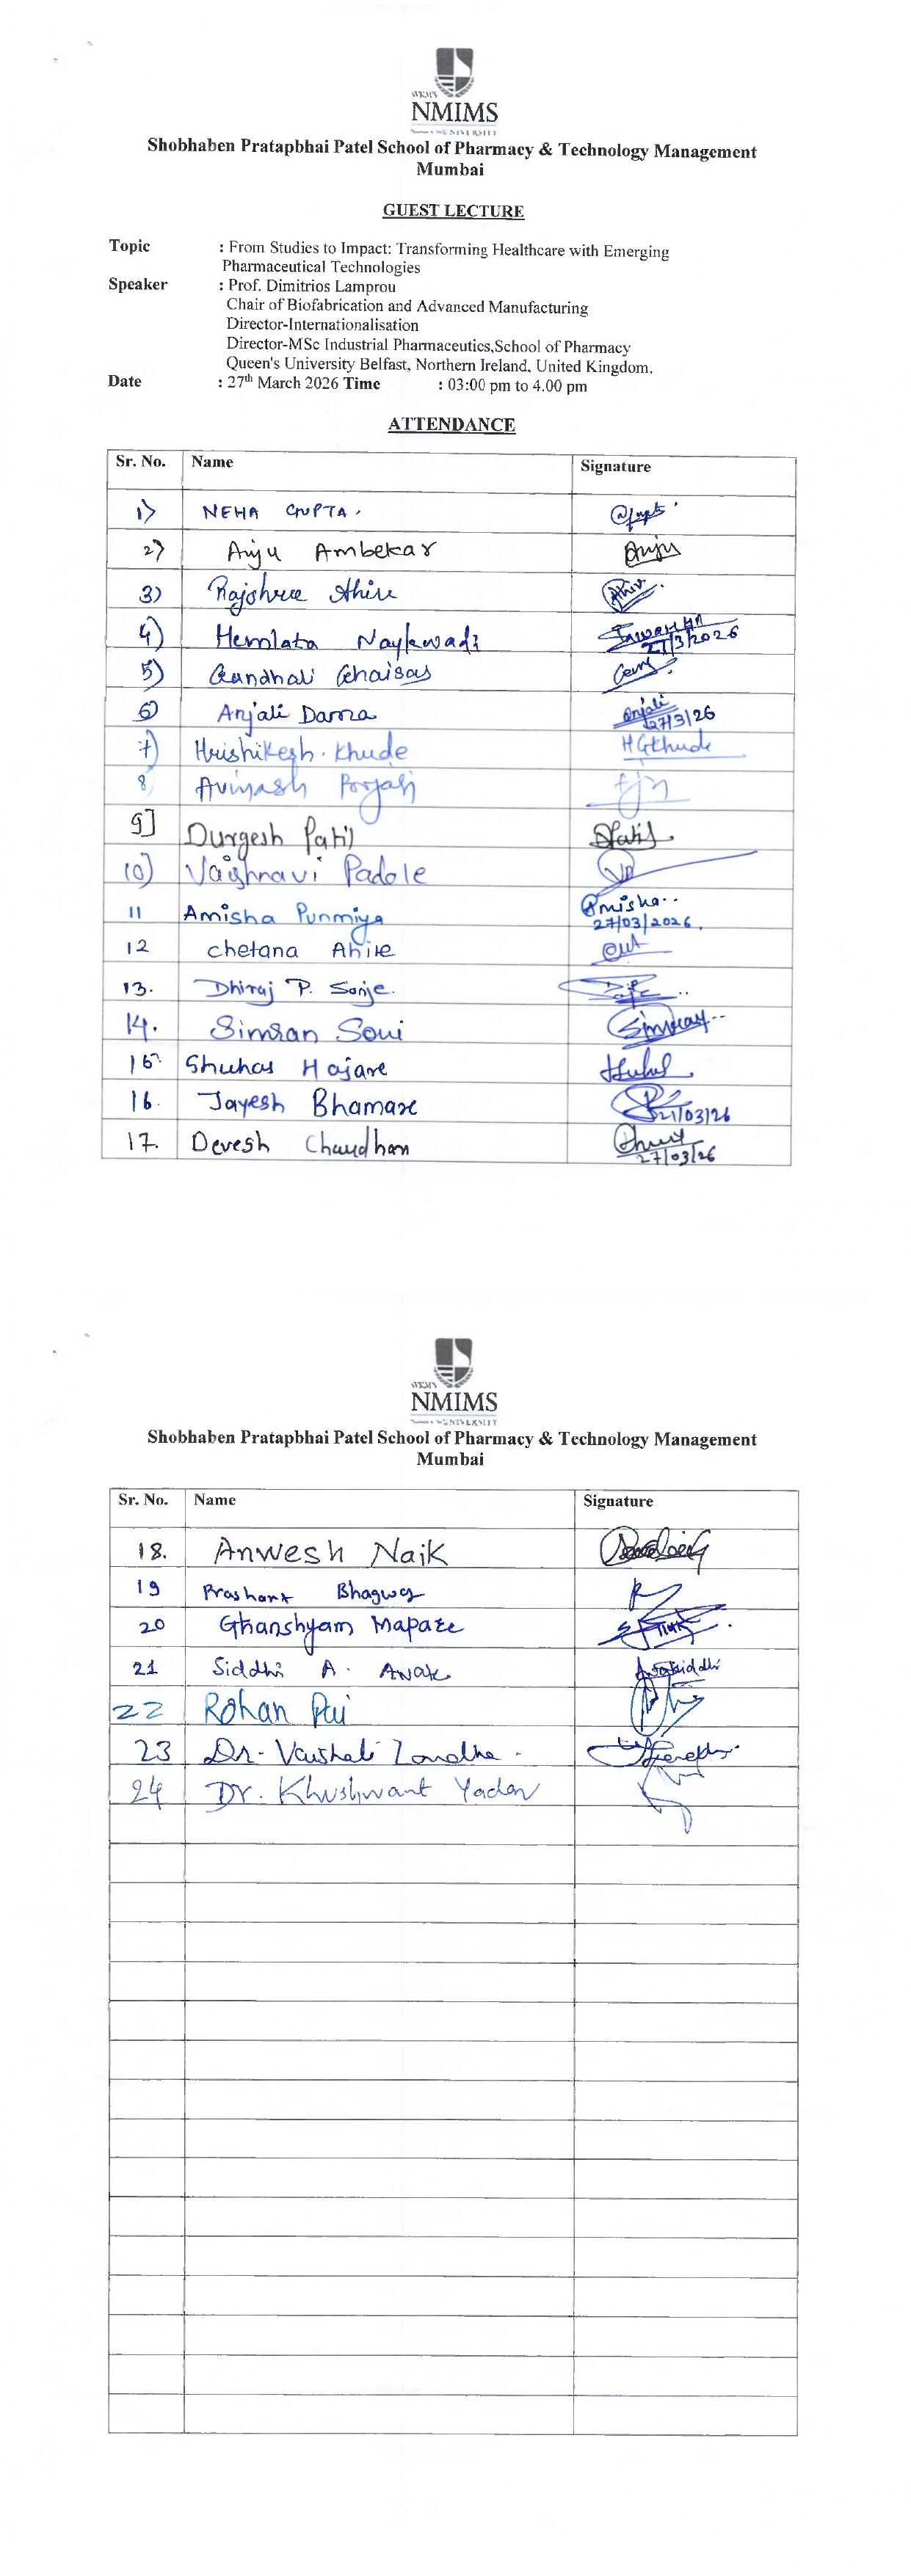 SVKM'S
NMIMS
UNIVERSITY
Shobhaben Pratapbhai Patel School of Pharmacy & Technology Management
Mumbai
GUEST LECTURE
Topic : From Studies to Impact: Transforming Healthcare with Emerging
Pharmaceutical Technologies
Speaker : Prof. Dimitrios Lamprou
Chair of Biofabrication and Advanced Manufacturing
Director-Internationalisation
Director-MSc Industrial Pharmaceutics,School of Pharmacy
Queen's University Belfast, Northern Ireland, United Kingdom.
Date : 27th March 2026 Time : 03:00 pm to 4.00 pm
ATTENDANCE
Sr. No. Name Signature
1) NEHA GUPTA.
2) Anju Ambekar Anju
3) Rajshree Ahire Ahire
4) Hemlata Naykwadi 27/3/2026
5) Gandhali Ghaisas
6) Anjali Darra Anjali 27/3/26
7) Hrishikesh. Khude HGKhude
8 Avinash
9] Durgesh Patil DPatil
10) Vaishnavi Padole VP
11 Amisha Punmiya Amisha.. 27/03/2026.
12 chetana Ahire
13. Dhiraj P. Sonje.
14. Simran Soni Simran
15 Shuhas Hajare
16. Jayesh Bhamare 27/03/26
17. Devesh Chaudhari 27/03/26
SVKM'S
NMIMS
UNIVERSITY
Shobhaben Pratapbhai Patel School of Pharmacy & Technology Management
Mumbai
Sr. No. Name Signature
18. Anwesh Naik
19 Prashant Bhagwat
20 Ghanshyam Mapare
21 Siddhi A. Avak
22 Rohan Pai
23 Dr. Vaishali Londhe.
24 Dr. Khushwant Yadav